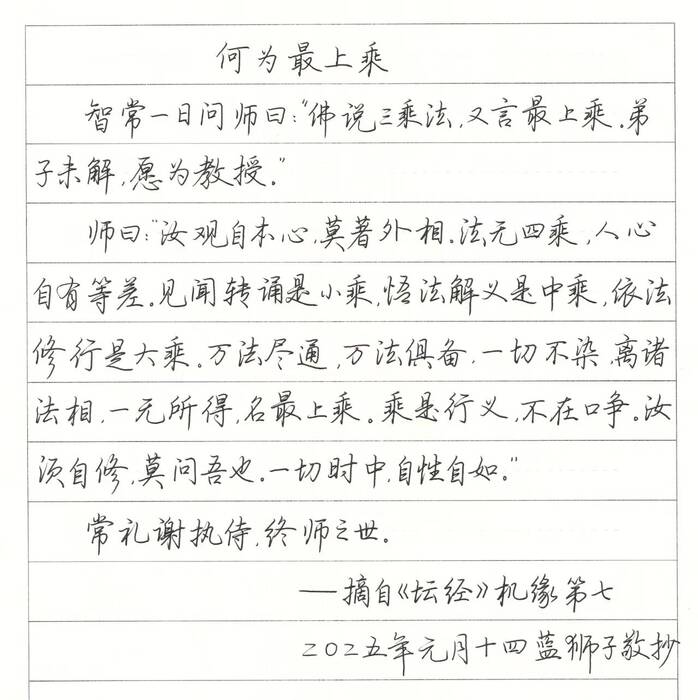 何为最上乘
智常一日问师曰:"佛说三乘法,又言最上乘。弟
子未解,愿为教授。"
师曰:"汝观自本心,莫著外相。法无四乘,人心
自有等差。见闻转诵是小乘,悟法解义是中乘,依法
修行是大乘。万法尽通,万法俱备,一切不染,离诸
法相,一无所得,名最上乘。乘是行义,不在口争。汝
须自修,莫问吾也。一切时中,自性自如。"
常礼谢执侍,终师之世。
——摘自《坛经》机缘第七
2025年元月十四蓝狮子敬抄